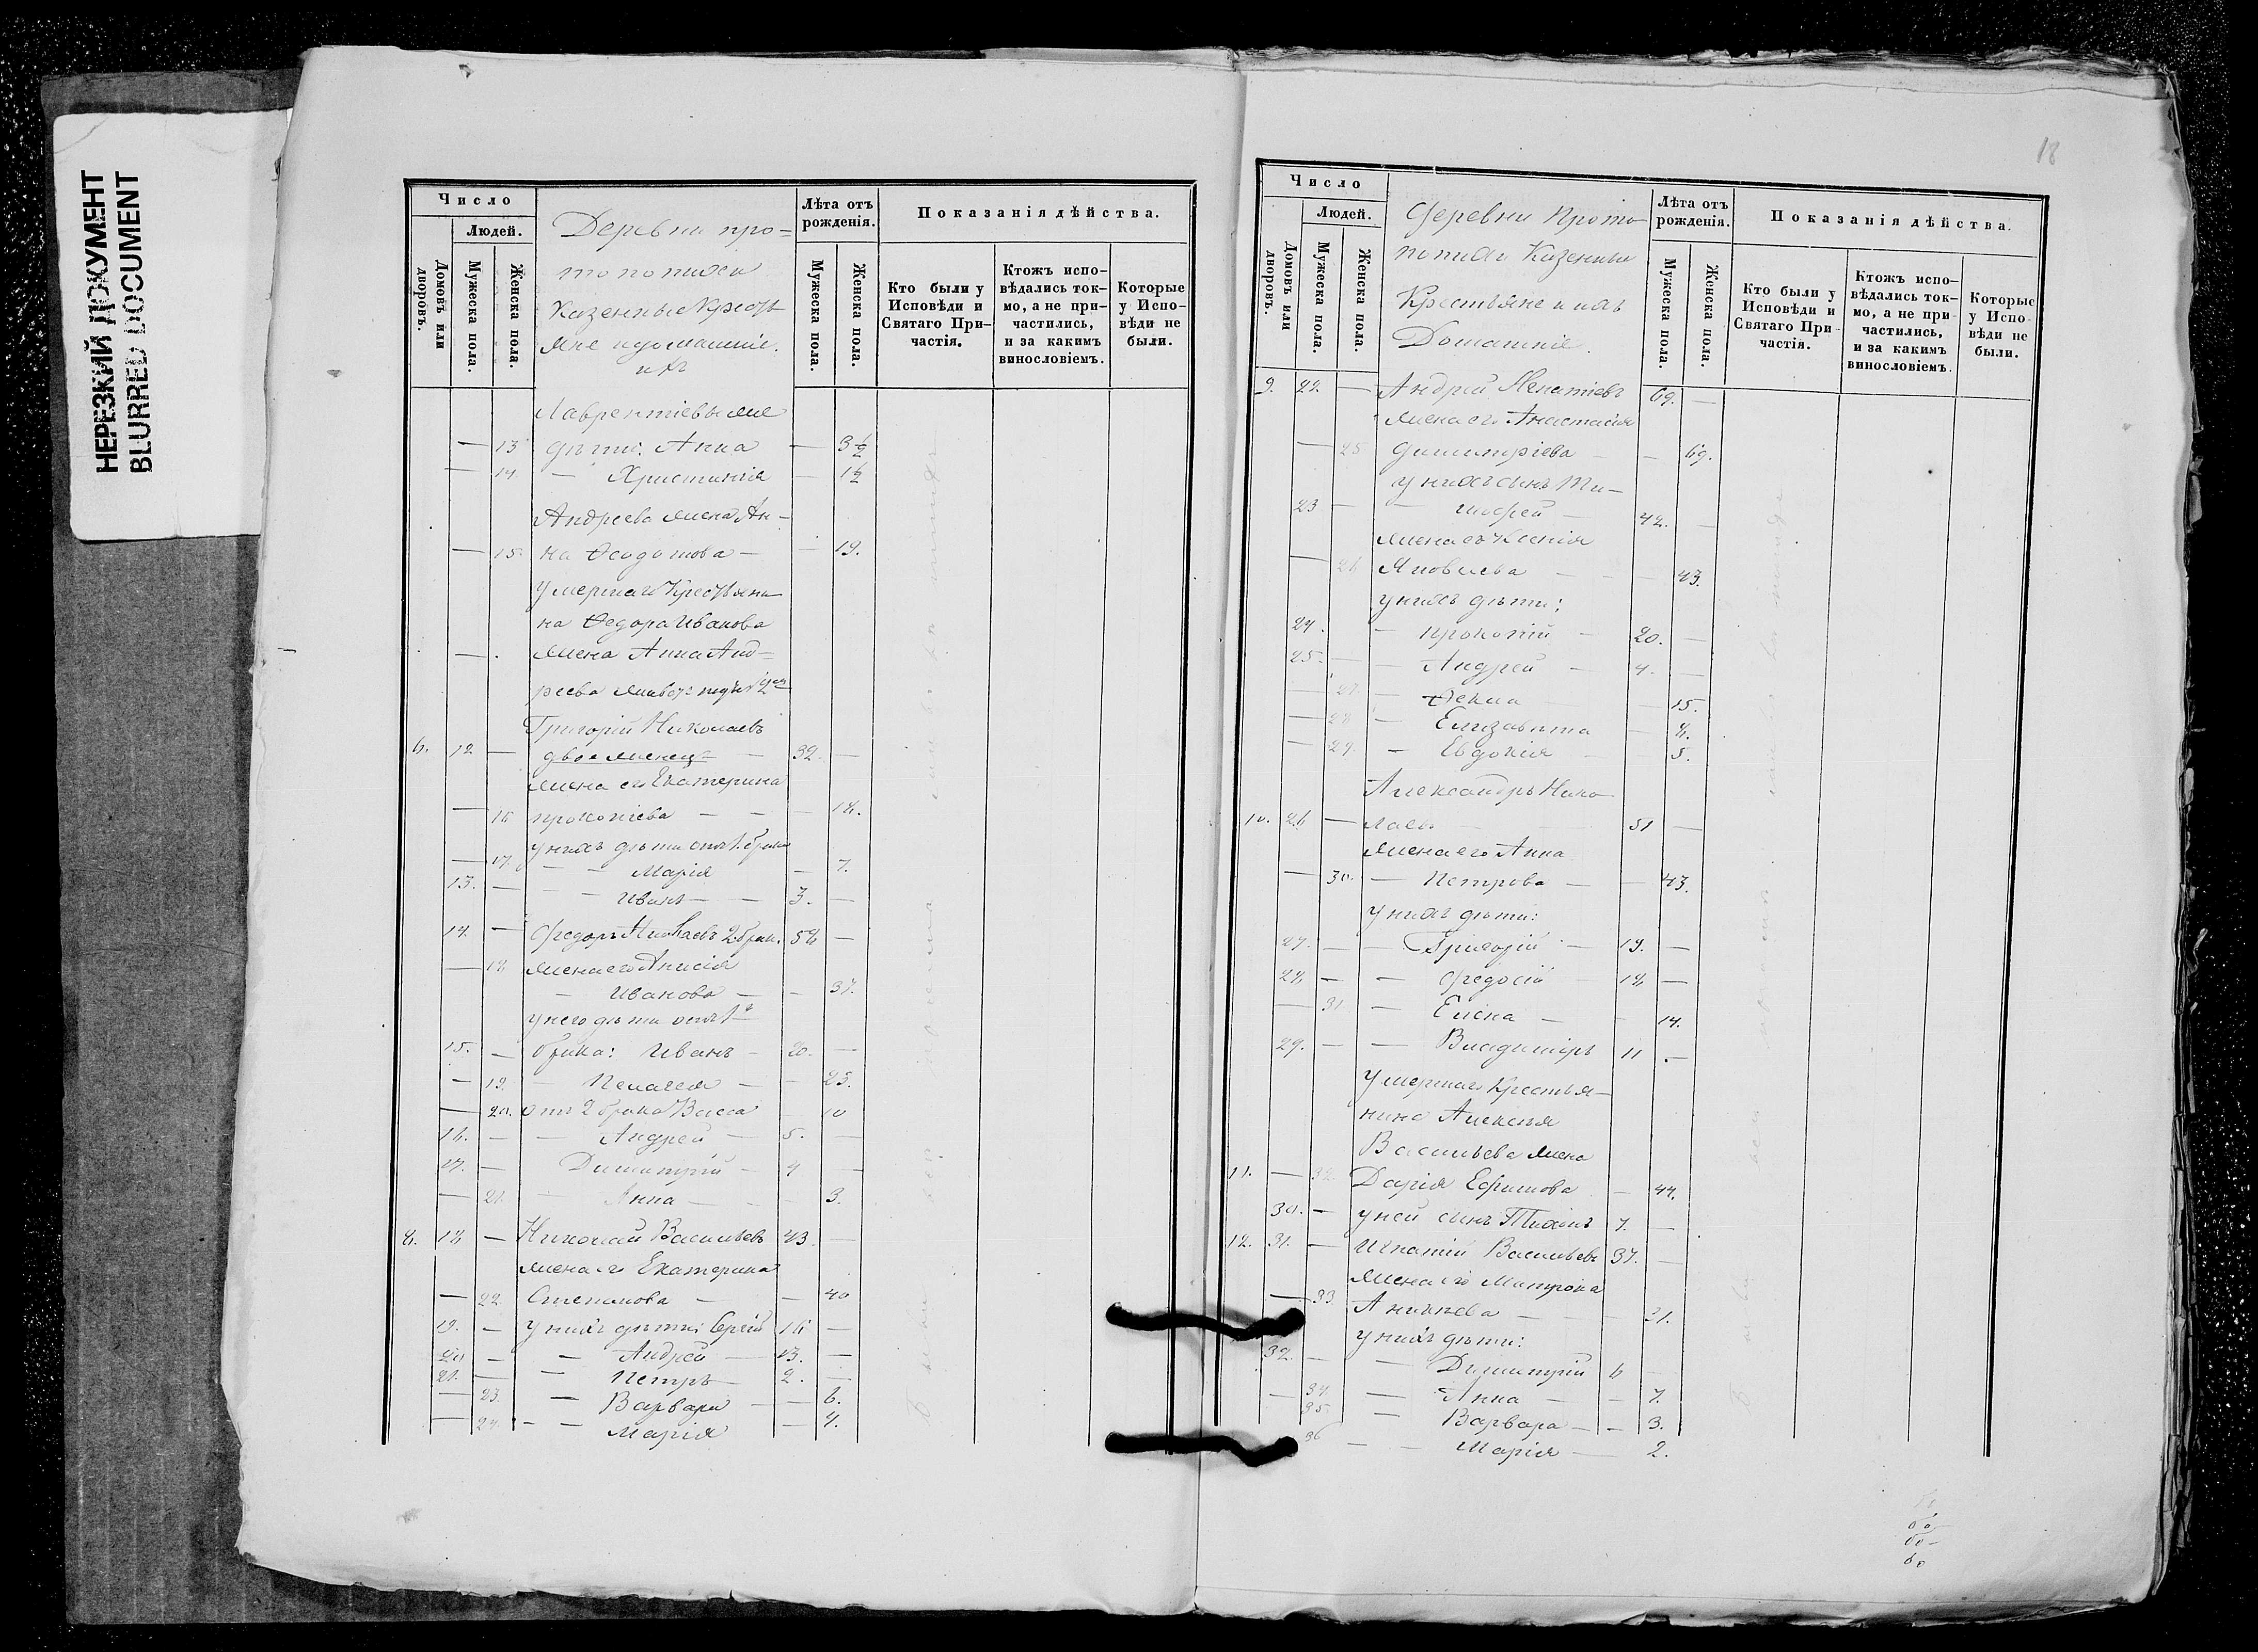 НЕРЕЗКИЙ ДОКУМЕНТ
BLURRED DOCUMENT
Число
Людей.
Домовъ или дворовъ.
Мужеска пола.
Женска пола.
Деревни про=
топопихи
Казенные Крестья
яне и домашніе
ихъ
Лѣта отъ рожденія.
Мужеска пола.
Женска пола.
Показанія дѣйства.
Кто были у Исповѣди и Святаго При-частія.
Ктожъ испо-вѣдались ток-мо, а не при-частились, и за какимъ винословіемъ.
Которые у Испо-вѣди не были.
Лаврентіевы же
— 13 дѣти: Анна — 3½
— 14 — Христинія — 1½
Андреева жена Ан-
— 15. на Ѳеодотова — — 19.
умершаго Крестьяни
на Ѳедора Иванова
— . жена Анна Анд=
реева
Григорій Николаевъ
6. 12 — двоеженецъ — 32. —
жена его Екатерина
— 16 прокопіева — — — 18.
у нихъ дѣти отъ 1. брака
— 17. — — Марія — 7.
13. — — — Иванъ — — 3. —
14. — Ѳедоръ 2 брак. 58 —
— 18 жена его Анисія
— Иванова — — 37.
у него дѣти отъ 1го
15. — брака: Иванъ — 20. —
— 19. — Пелагея — — 25.
— 20. отъ 2 брака Васса — 10
16. — — Андрей — 5. —
17. — Димитрій — 4 —
— 21. — Анна — — 3.
8. 18 — Николай Васильевъ 43. —
жена его Екатерина
— 22. Степанова — — 40
19. — у нихъ дѣти: Сергій 16 —
20 — — Андрей — 13. —
21. — — Петръ — 2. —
— 23. — Варвара — — 6.
— 24. — — Марія — 4.
18
Число
Людей.
Домовъ или дворовъ.
Мужеска пола.
Женска пола.
Деревни Прото
попихи Казенные
Крестьяне и ихъ
Домашніе.
Лѣта отъ рожденія.
Мужеска пола.
Женска пола.
Показанія дѣйства.
Кто были у Исповѣди и Святаго При-частія.
Ктожъ испо-вѣдались ток-мо, а не при-частились, и за какимъ винословіемъ.
Которые у Испо-вѣди не были.
9. 22. — Андрей Игнатіевъ 69. —
жена его Анастасія
— 25 Димитріева — — 69.
у нихъ сынъ Ти-
23 — — мофей — 42. —
жена его Ксенія
— 26 Яковлева — — — 43.
у нихъ дѣти:
24. — Прокопій — 20. —
25. — — Андрей — 4. —
— 27. — Ѳекла — 15.
— 28 — Елизавета — 8.
— 29. — Евдокія — 5.
Александръ Нико
10. 26 — лаевъ 51 —
жена его Анна
— 30. — Петрова — — 43.
у нихъ дѣти:
27. — — Григорій — 19. —
28. — — Ѳедосій 18 —
— 31 — Елена — — 14.
29. — — Владиміръ 11 —
умершаго Крестья-
нина Алексѣя
Васильева жена
11. — 32. Дарія Ефимова — 44.
30. — у ней сынъ Тихонъ 7. —
12. 31. — Игнатій Васильевъ 37. —
жена его Матрона
— 33 — — 31.
у нихъ дѣти:
32. — — Димитрій 6 —
— 34. — Анна — — 7.
— 35. — Варвара — — 3.
36 — — Марія — 2.